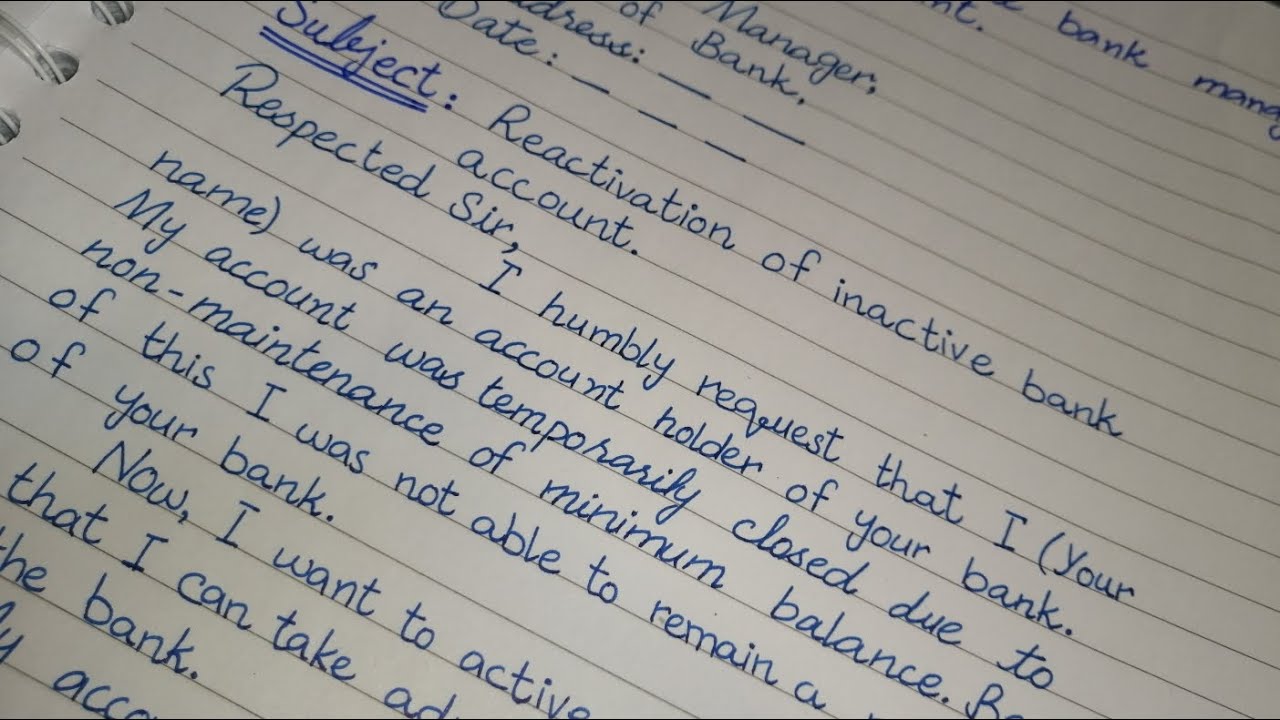 bank
Manager,
of Bank,
Address: — —
Date: — — —
Subject: Reactivation of inactive bank
account.
Respected Sir,
I humbly request that I (Your
name) was an account holder of your bank.
My account was temporarily closed due to
non-maintenance of minimum balance.
of this I was not able to remain a
of your bank.
Now, I want to active
that I can take
the bank.